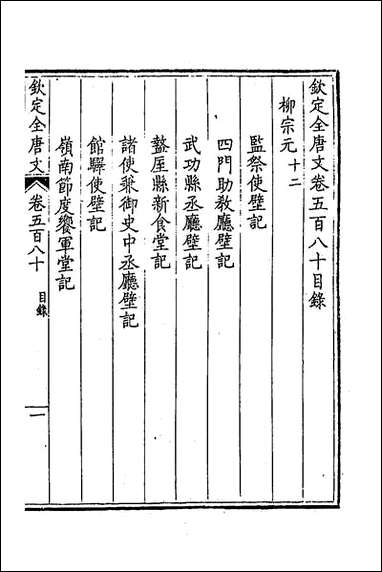 欽定全唐文卷五百八十目錄
柳宗元十二
監祭使壁記
四門助教廳壁記
武功縣丞廳壁記
盩厔縣新食堂記
諸使兼御史中丞廳壁記
館驛使壁記
嶺南節度饗軍堂記
欽定全唐文
卷五百八十
目錄
一